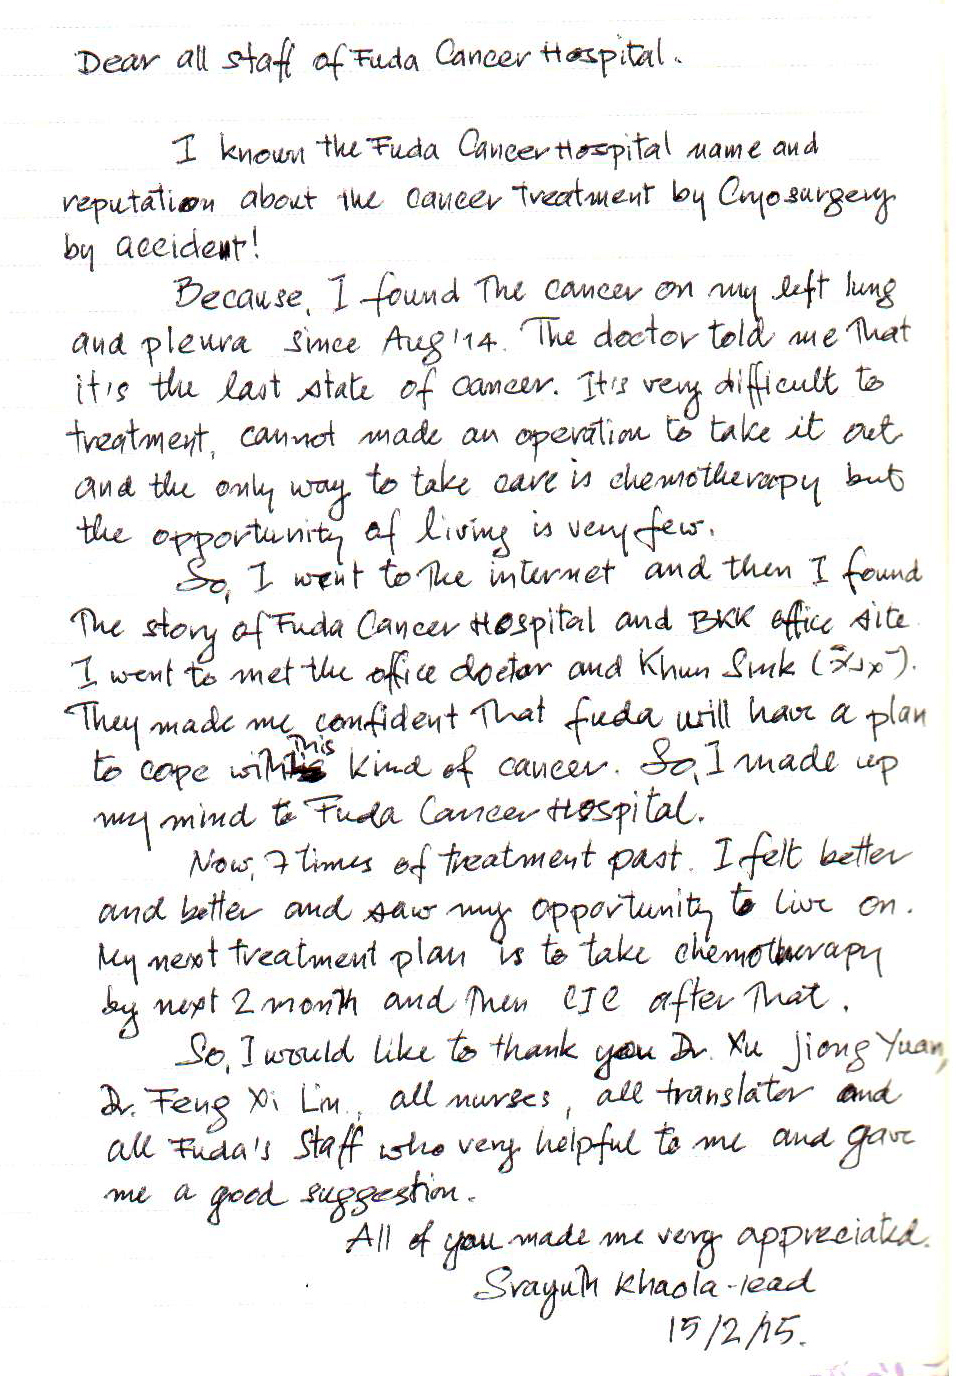 Dear all staff of Fuda Cancer Hospital.
I known the Fuda Cancer Hospital name and
reputation about the cancer treatment by Cryosurgery
by accident!
Because, I found The cancer on my left lung
and pleura since Aug '14. The doctor told me That
it's the last state of cancer. It's very difficult to
treatment, cannot made an operation to take it out
and the only way to take care is chemotherapy but
the opportunity of living is very few.
So, I went to The internet and then I found
The story of Fuda Cancer Hospital and BKK office site
I went to met the office doctor and Khun Smk
They made me confident That fuda will have a plan
to cope with This kind of cancer. So, I made up
my mind to Fuda Cancer Hospital.
Now, 7 times of treatment past. I felt better
and better and saw my opportunity to live on.
My next treatment plan is to take chemotherapy
by next 2 month and Then CIC after That.
So, I would like to thank you Dr. Xu Jiong Yuan,
Dr. Feng Xi Lin, all nurses, all translator and
all Fuda's Staff who very helpful to me and gave
me a good suggestion.
All of you made me very appreciated.
Srayuth Khaola-iead
15/2/15.